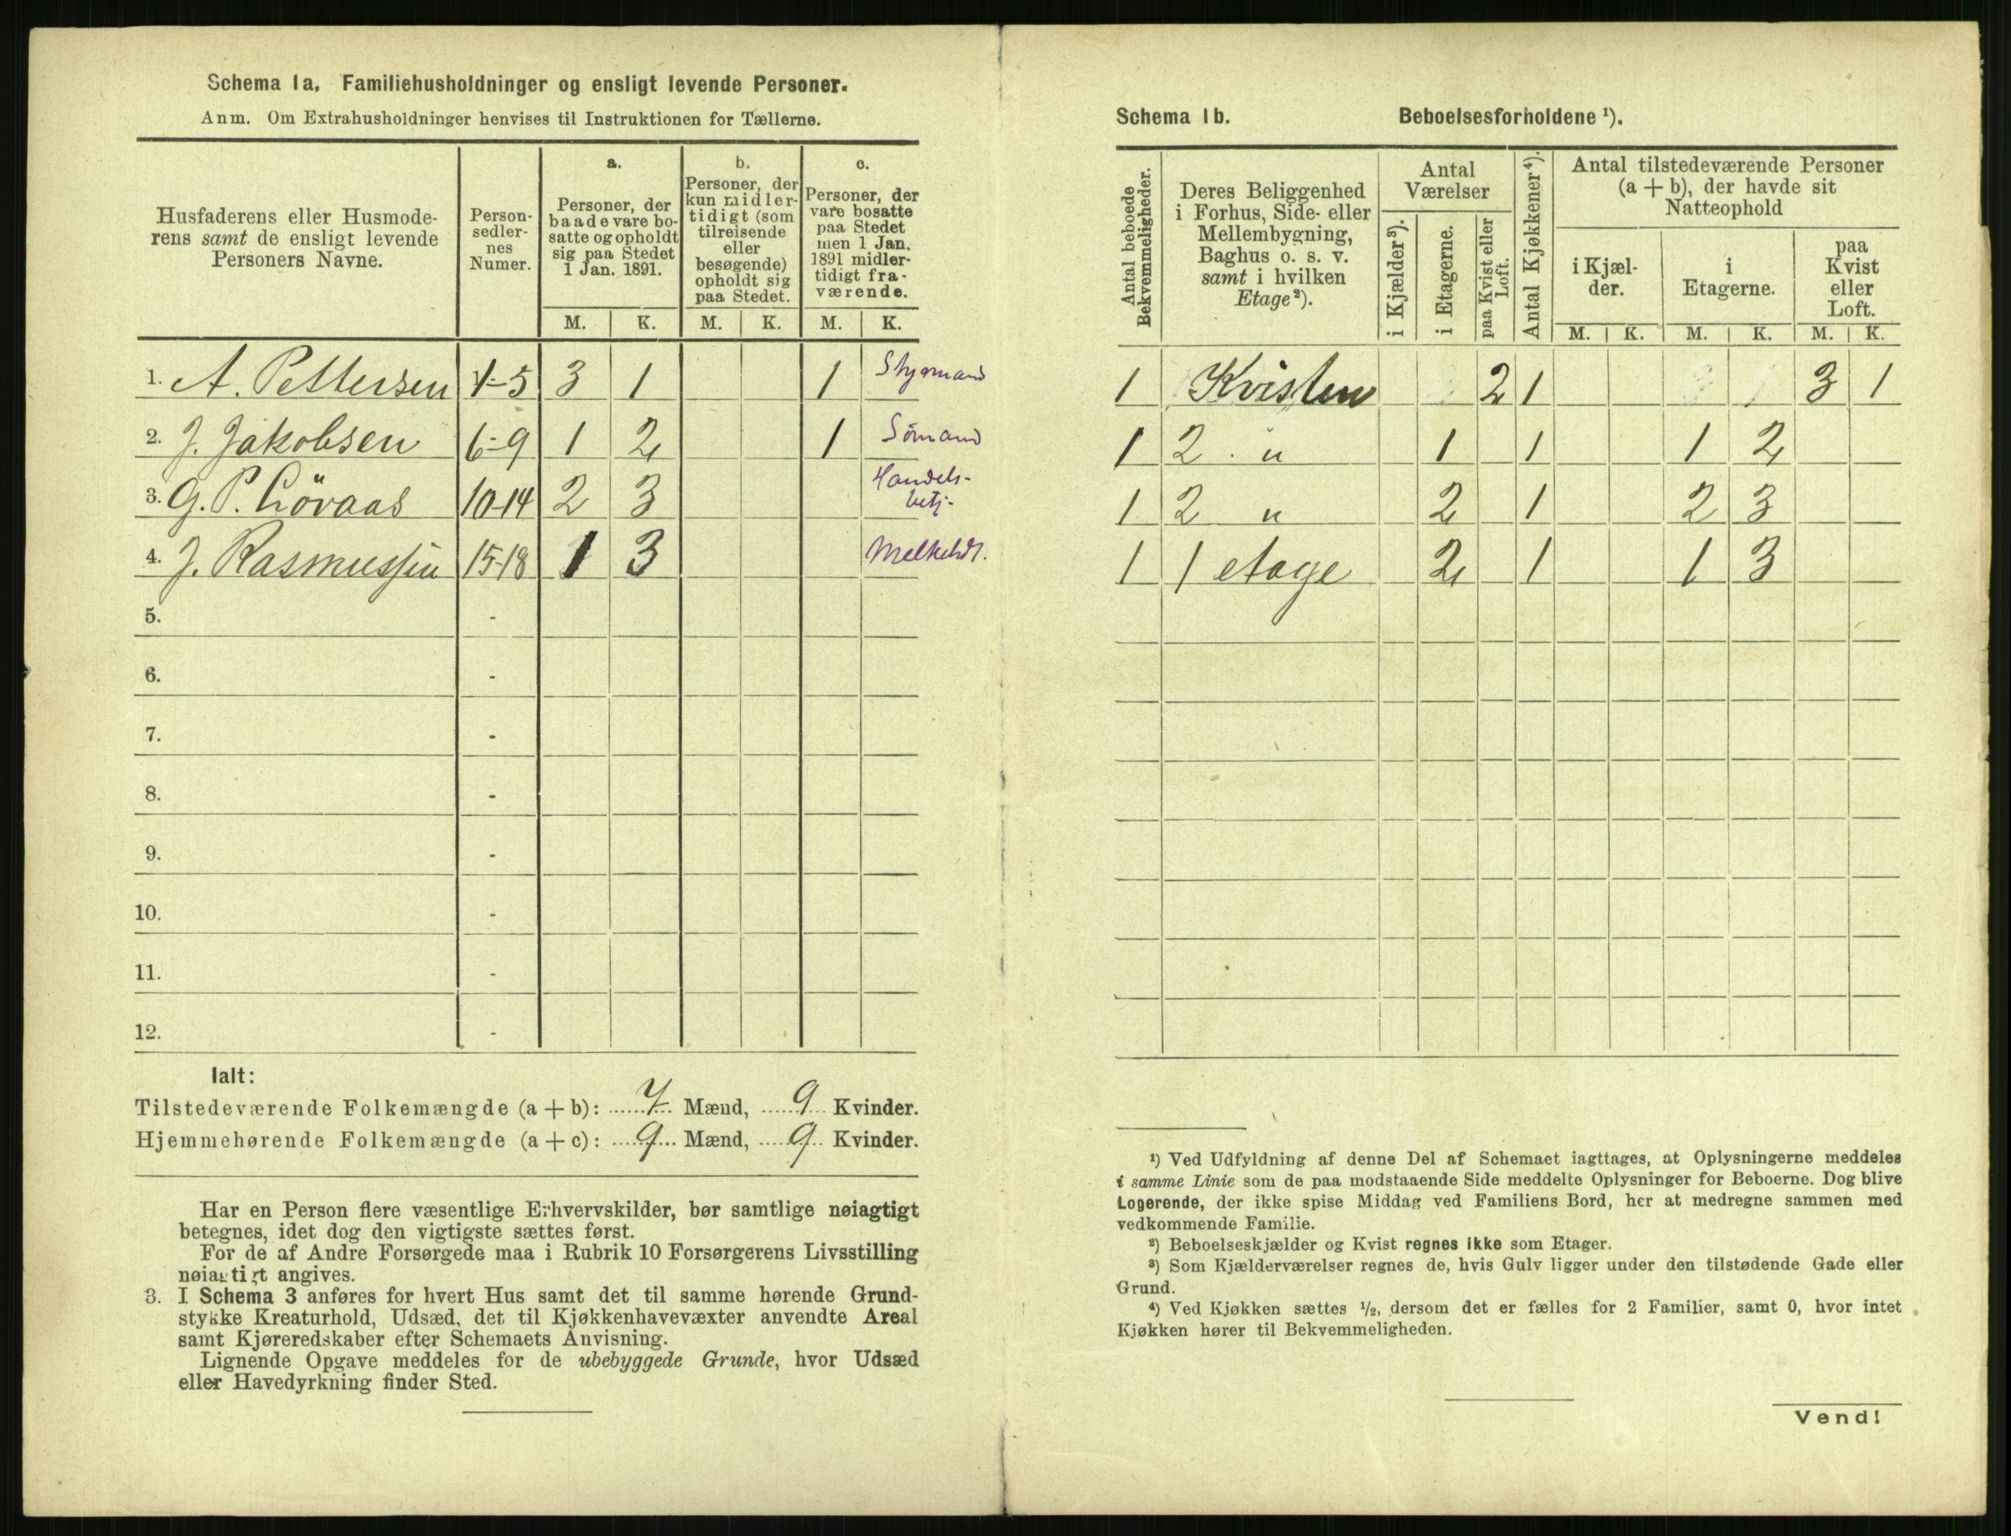 Schema 1a. Familiehusholdninger og ensligt levende Personer.
Anm. Om Extrahusholdninger henvises til Instruktionen for Tællerne.
Husfaderens eller Husmode-
rens samt de ensligt levende
Personers Navne.
Person-
sedler-
nes
Numer.
a.
Personer, der
baade vare bo-
satte og opholdt
sig paa Stedet
1 Jan. 1891.
b.
Personer, der
kun midler-
tidigt (som
tilreisende
eller
besøgende)
opholdt sig
paa Stedet.
c.
Personer, der
vare bosatte
paa Stedet
men 1 Jan.
1891 midler-
tidigt fra-
værende.
M. K. M. K. M. K.
1. A. Pettersen 1-5 3 1 1 Styrmand
2. J. Jakobsen 6-9 1 2 1 Sømand
3. G. P. Lövaas 10-14 2 3 Handels-
betj.
4. J. Rasmussen 15-18 1 3 Melkehdl.
5. -
6. -
7. -
8. -
9. -
10. -
11. -
12. -
Ialt:
Tilstedeværende Folkemængde (a + b): 7 Mænd, 9 Kvinder.
Hjemmehørende Folkemængde (a + c): 9 Mænd, 9 Kvinder.
Har en Person flere væsentlige Erhvervskilder, bør samtlige nøiagtigt
betegnes, idet dog den vigtigste sættes først.
For de af Andre Forsørgede maa i Rubrik 10 Forsørgerens Livsstilling
nøiagtigt angives.
3. I Schema 3 anføres for hvert Hus samt det til samme hørende Grund-
stykke Kreaturhold, Udsæd, det til Kjøkkenhavevæxter anvendte Areal
samt Kjøreredskaber efter Schemaets Anvisning.
Lignende Opgave meddeles for de ubebyggede Grunde, hvor Udsæd
eller Havedyrkning finder Sted.
Schema 1b. Beboelsesforholdene ¹).
Antal beboede
Bekvemmeligheder.
Deres Beliggenhed
i Forhus, Side- eller
Mellembygning,
Baghus o. s. v.
samt i hvilken
Etage²).
Antal
Værelser
i Kjælder³).
i Etagerne.
paa Kvist eller
Loft.
Antal Kjøkkener⁴).
Antal tilstedeværende Personer
(a + b), der havde sit
Natteophold
i Kjæl-
der.
i
Etagerne.
paa
Kvist
eller
Loft.
M. K. M. K. M. K.
1 Kvisten 2 1 3 1
1 2 " 1 1 1 2
1 2 " 2 1 2 3
1 1 etage 2 1 1 3
¹) Ved Udfyldning af denne Del af Schemaet iagttages, at Oplysningerne meddeles
i samme Linie som de paa modstaaende Side meddelte Oplysninger for Beboerne. Dog blive
Logerende, der ikke spise Middag ved Familiens Bord, her at medregne sammen med
vedkommende Familie.
²) Beboelseskjælder og Kvist regnes ikke som Etager.
³) Som Kjælderværelser regnes de, hvis Gulv ligger under den tilstødende Gade eller
Grund.
⁴) Ved Kjøkken sættes ½, dersom det er fælles for 2 Familier, samt 0, hvor intet
Kjøkken hører til Bekvemmeligheden.
Vend!